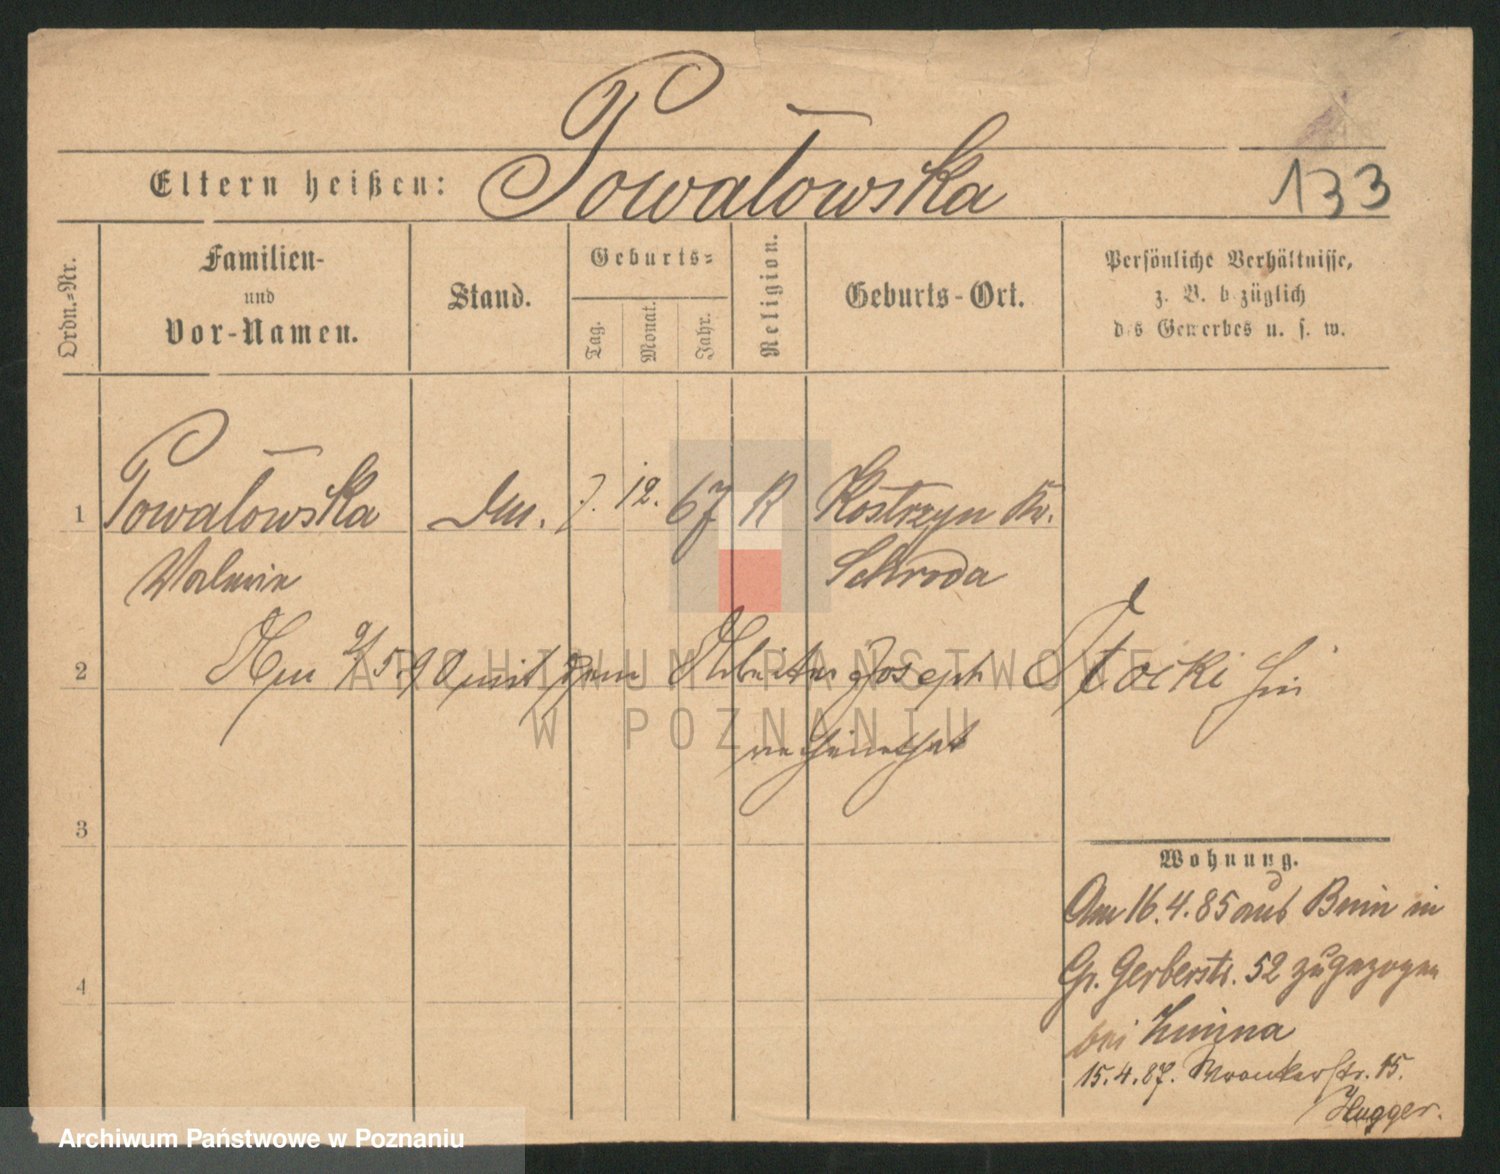 Powałowska
Eltern heißen:
133
Ordn.=Nr.
Familien-
und
Vor-Namen.
Stand.
Geburts=
Tag.
Monat.
Jahr.
Religion.
Geburts-Ort.
Persönliche Verhältnisse,
z. B. bezüglich
des Gewerbes u. s. w.
1 Powałowska 7. 12. 67 K Kostrzyn Kr.
Valerie Schroda
2 Am 9/5.90 mit dem Arbeiter Joseph Stocki hier
verheirathet
3
Wohnung.
Am 16.4.85 aus Bnin in
Gr. Gerberstr. 52 zugezogen
4
bei
15.4.87. Wronkerstr. 15.
Hugger.
ARCHIWUM PAŃSTWOWE
W POZNANIU
Archiwum Państwowe w Poznaniu